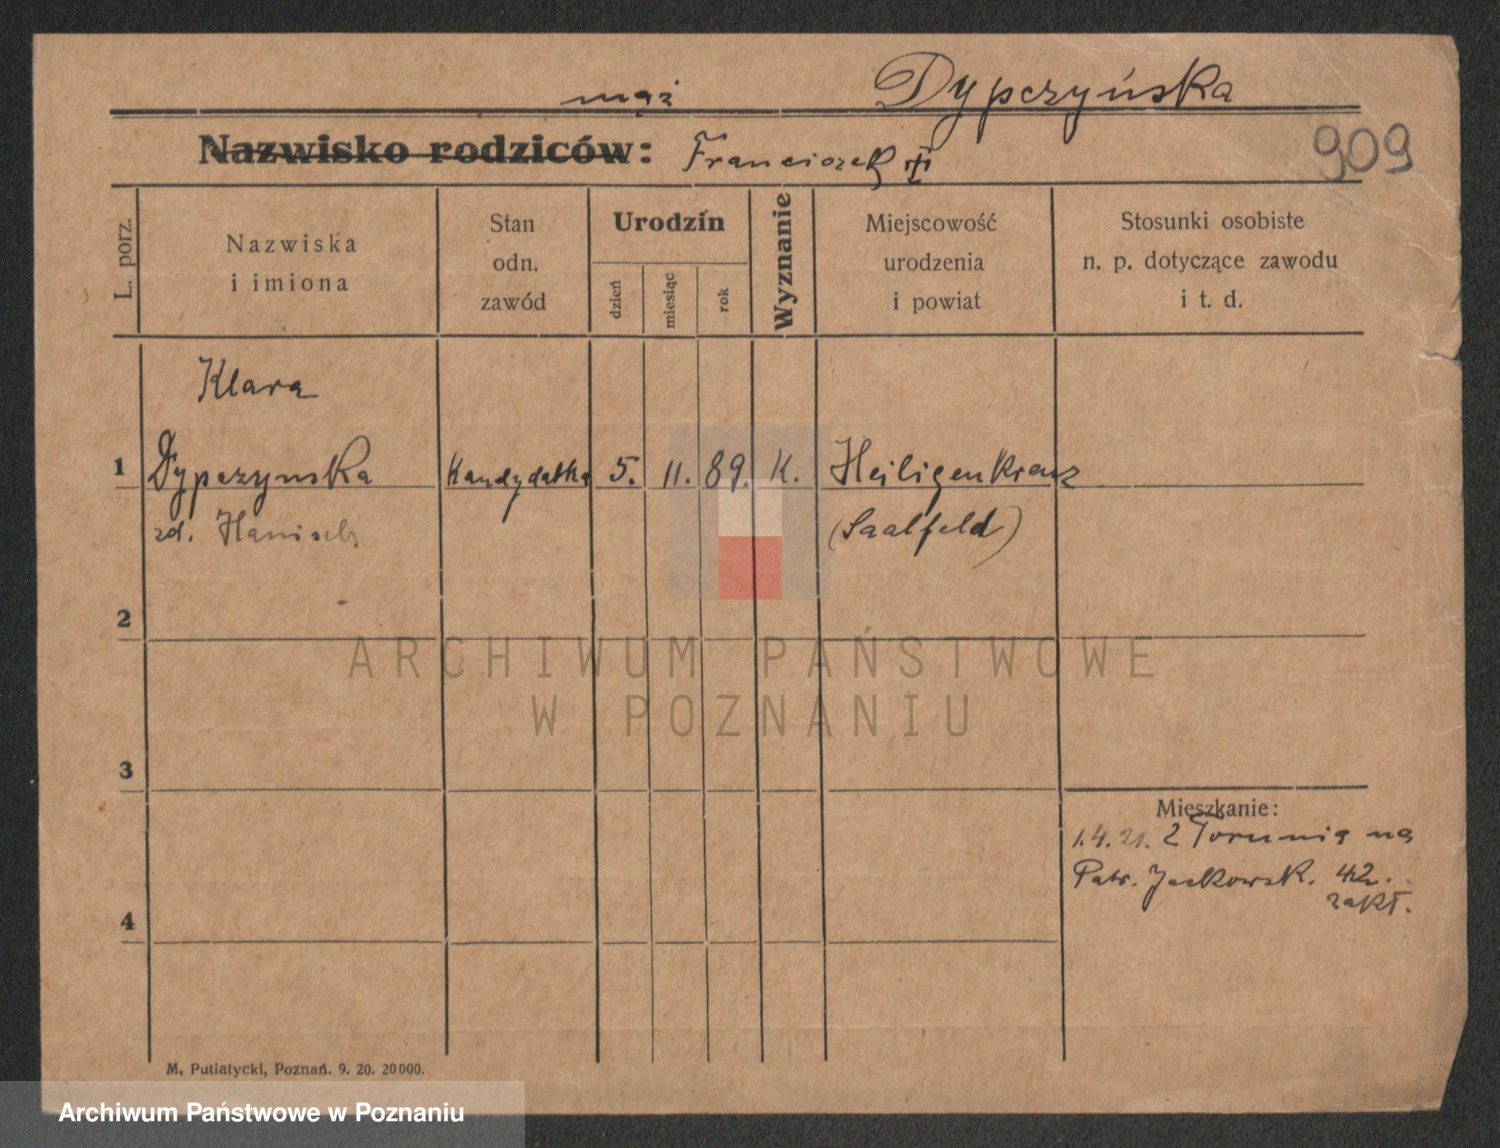 mąż Dypczyńska
Nazwisko rodziców: Franciszek
909
L. porz.
Nazwiska
i imiona
Stan
odn.
zawód
Urodzin
dzień
miesiąc
rok
Wyznanie
Miejscowość
urodzenia
i powiat
Stosunki osobiste
n. p. dotyczące zawodu
i t. d.
Klara
1 Dypczynska Kandydatka 5. 11. 89. K. Heiligenkreuz
zd. Hanisch (Saalfeld)
2
ARCHIWUM PAŃSTWOWE
W POZNANIU
3
Mieszkanie:
1.4.21. z Torunia na
Patr. Jackowsk. 42.
zakł.
4
M. Putiatycki, Poznań. 9. 20. 20000.
Archiwum Państwowe w Poznaniu